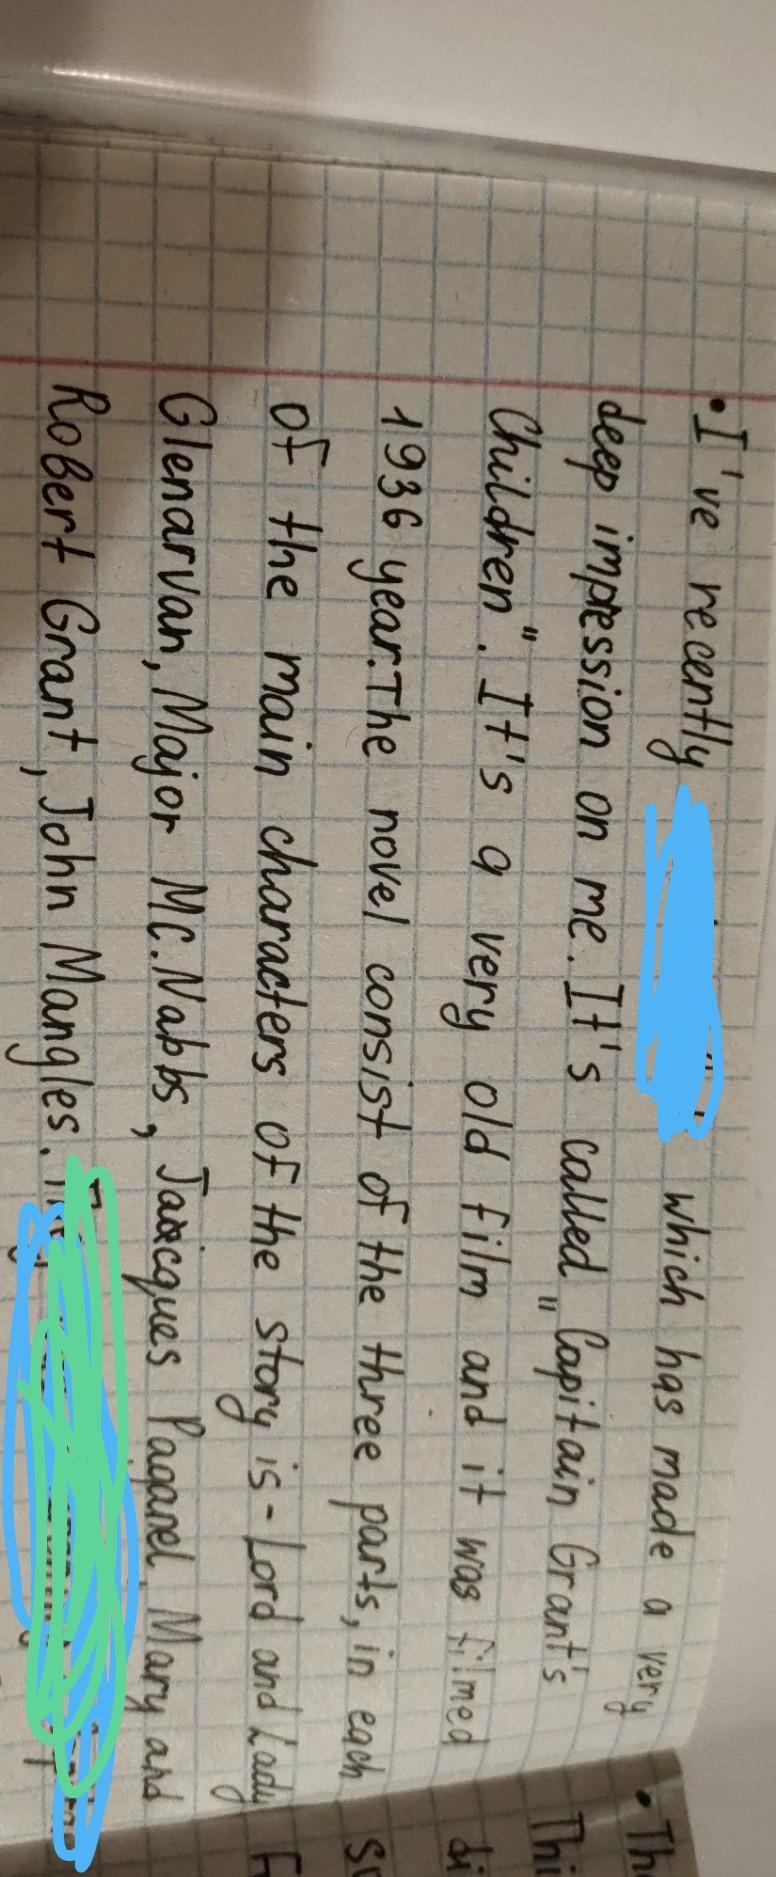 • I've recently which has made a very
deep impression on me. It's called „Capitain Grant's
Children". It's a very old film and it was filmed
1936 year. The novel consist of the three parts, in each
of the main characters of the story is - Lord and Lady
Glenarvan, Major Mc.Nabbs, Jacques Paganel, Mary and
Robert Grant, John Mangles.
• Th
Thi
di